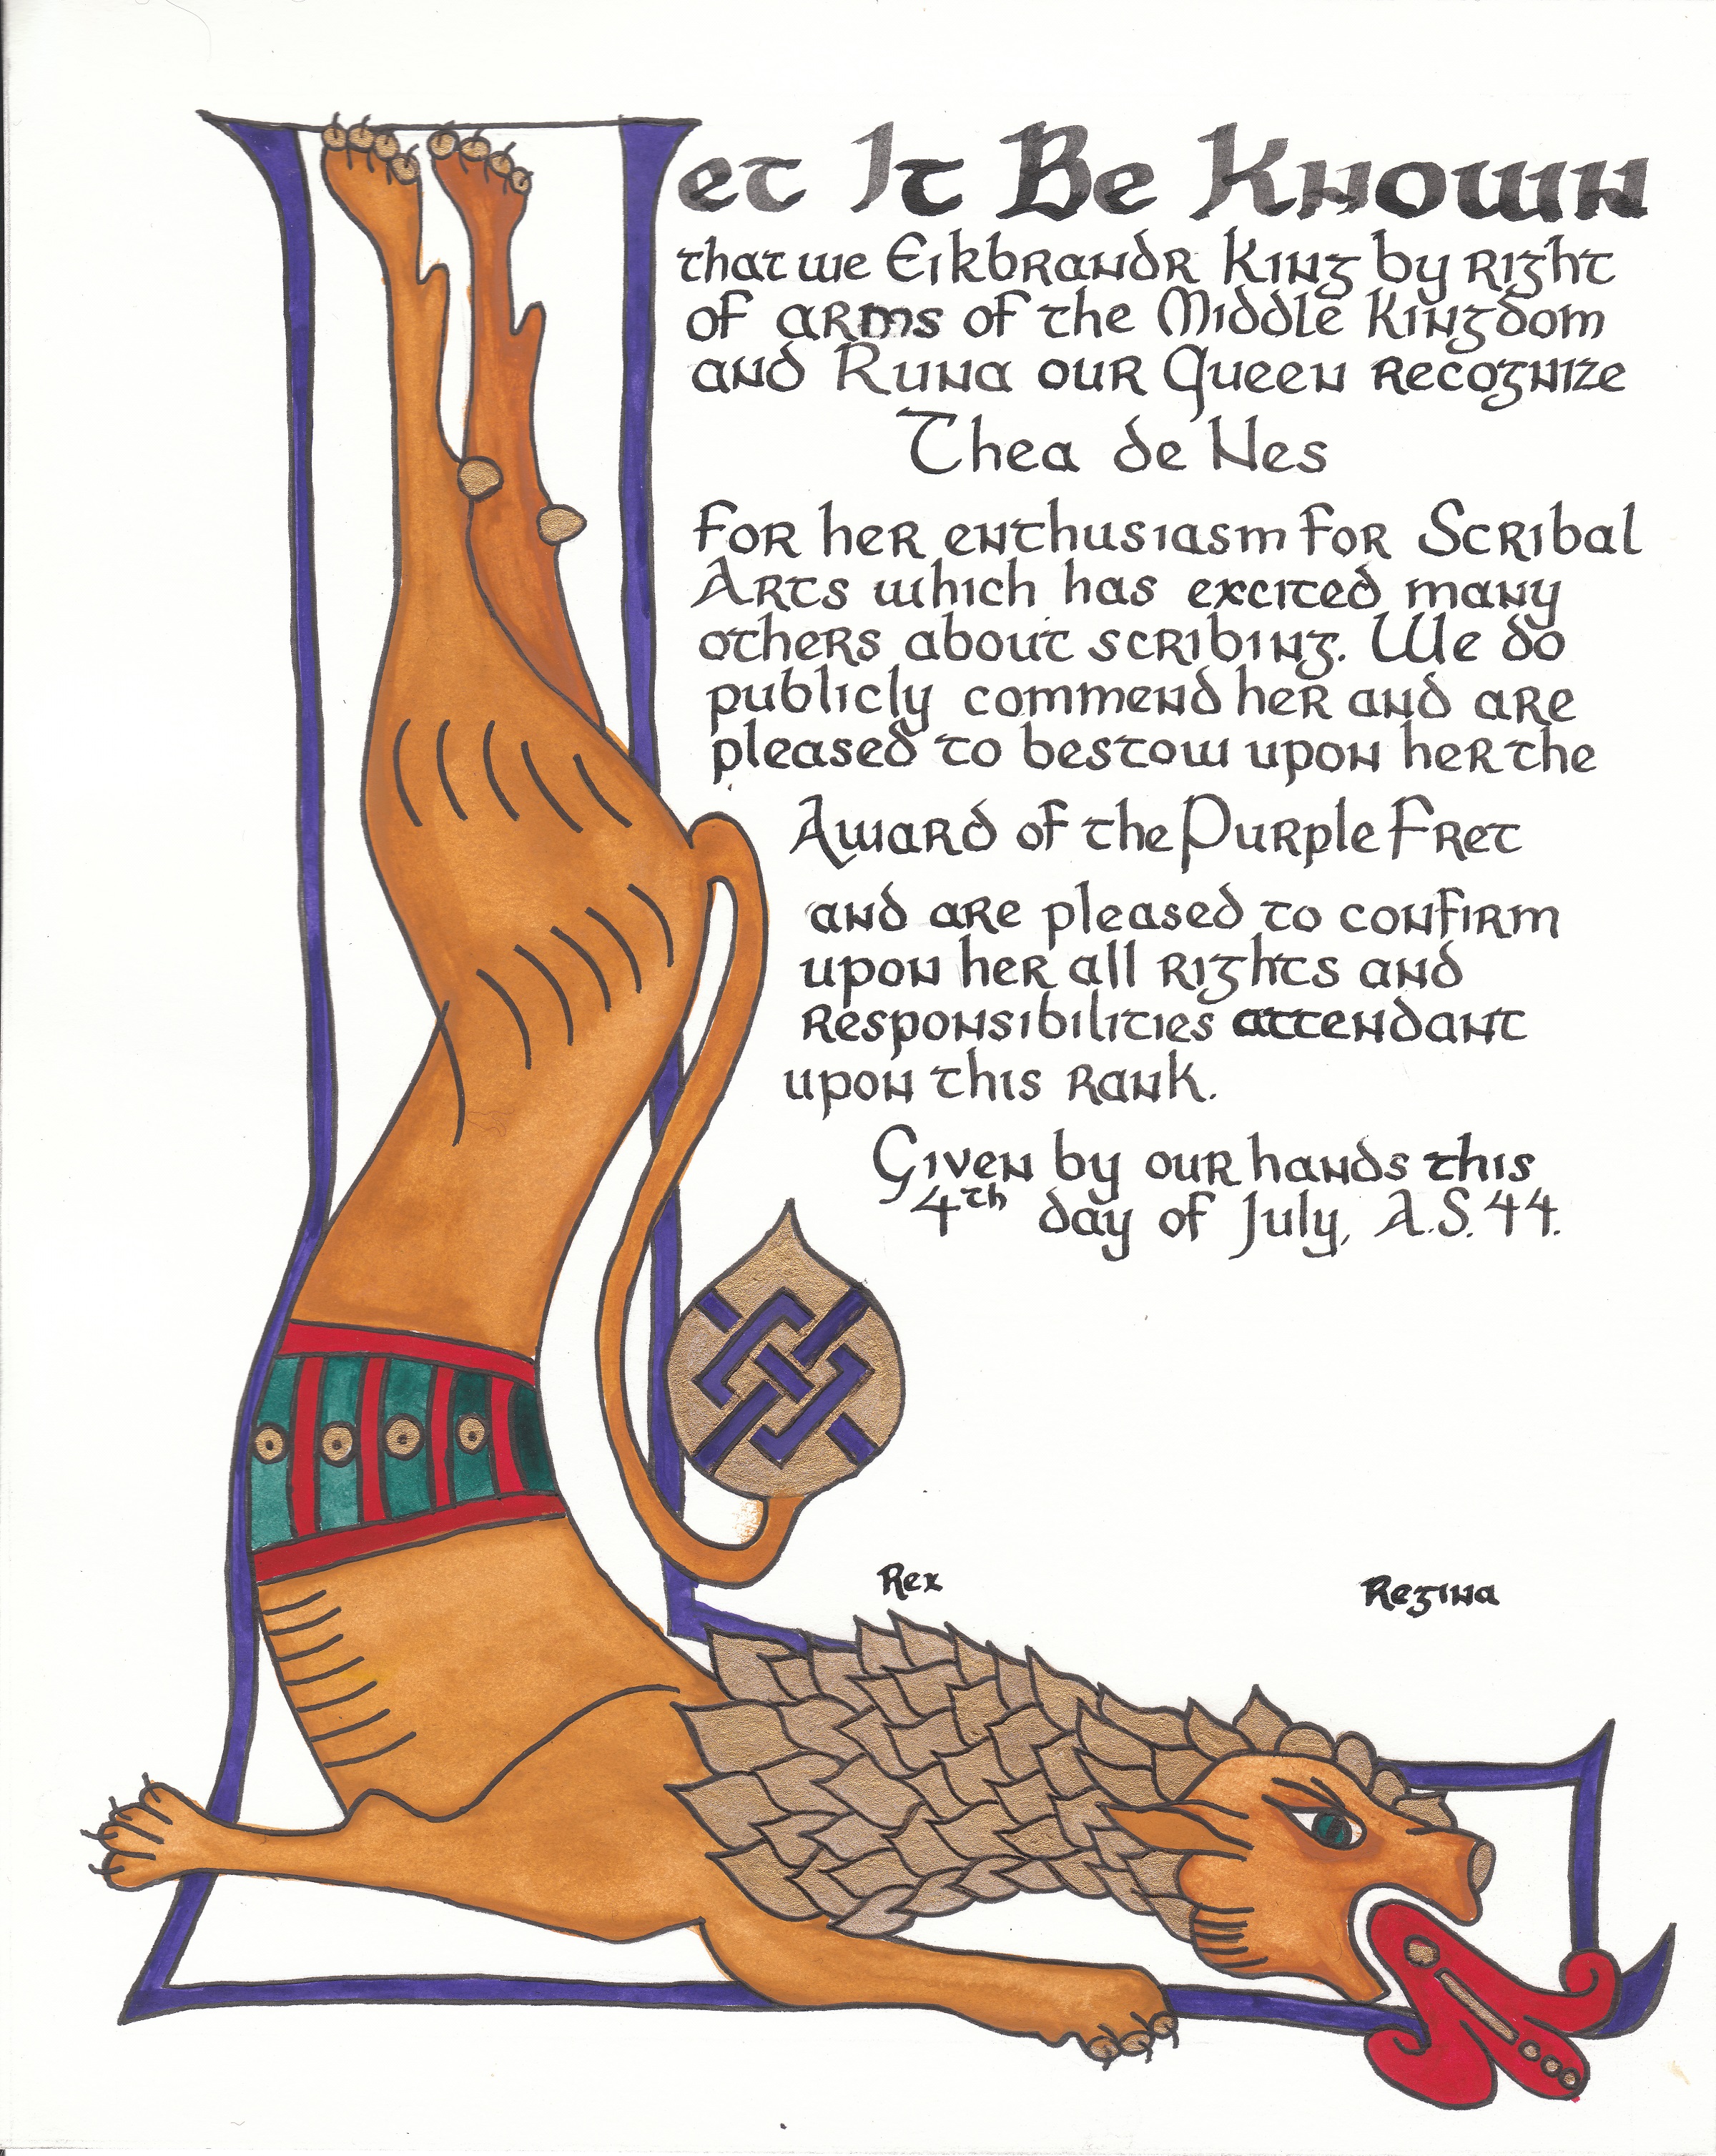 Let It Be Known
that we Eikbrandr King by right
of arms of the Middle Kingdom
and Runa our Queen recognize
Thea de Nes
For her enthusiasm for Scribal
Arts which has excited many
others about scribing. We do
publicly commend her and are
pleased to bestow upon her the
Award of the Purple Fret
and are pleased to confirm
upon her all rights and
responsibilities attendant
upon this rank.
Given by our hands this
4th day of July, A.S. 44.
Rex Regina